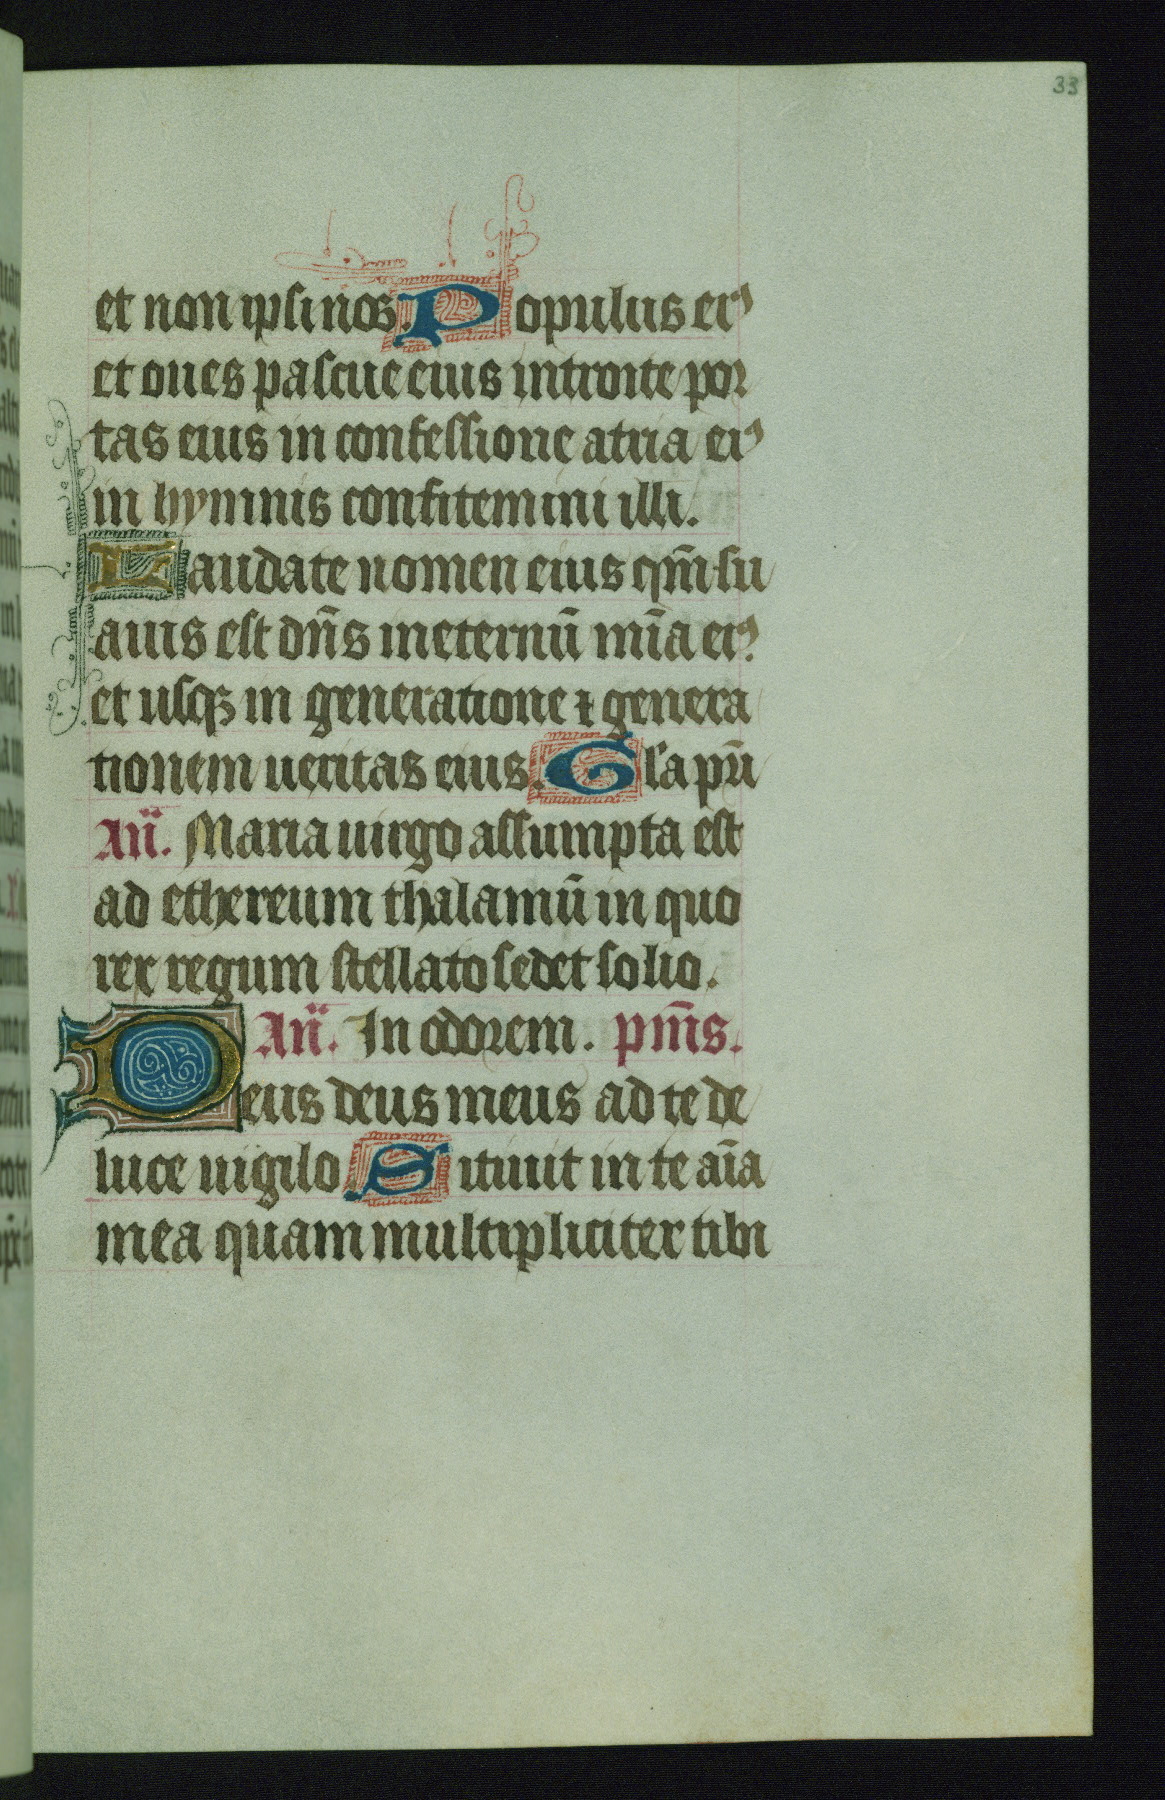 33
et non ipsi nos. Populus ei⁹
et oues pascue eius introite por
tas eius in confessione atria ei⁹
in hymnis confitemini illi.
Laudate nomen eius qm̄ su
auis est dn̄s in eternū mīa ei⁹.
et usqꝫ in generatione ⁊ genera
tionem ueritas eius. Gl'a pr̄i
An̄. Maria uirgo assumpta est
ad ethereum thalamū in quo
rex regum stellato sedet solio.
An̄. In odorem. pm̄s.
Deus deus meus ad te de
luce uigilo. Sitiuit in te aīa
mea quam multipliciter tibi